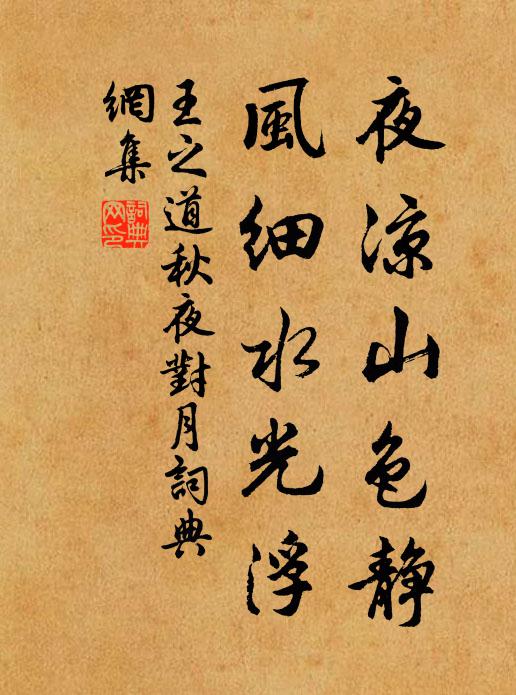 夜涼山色静
風細水光浮
王之道秋夜對月詞典
網集
詞典
网印